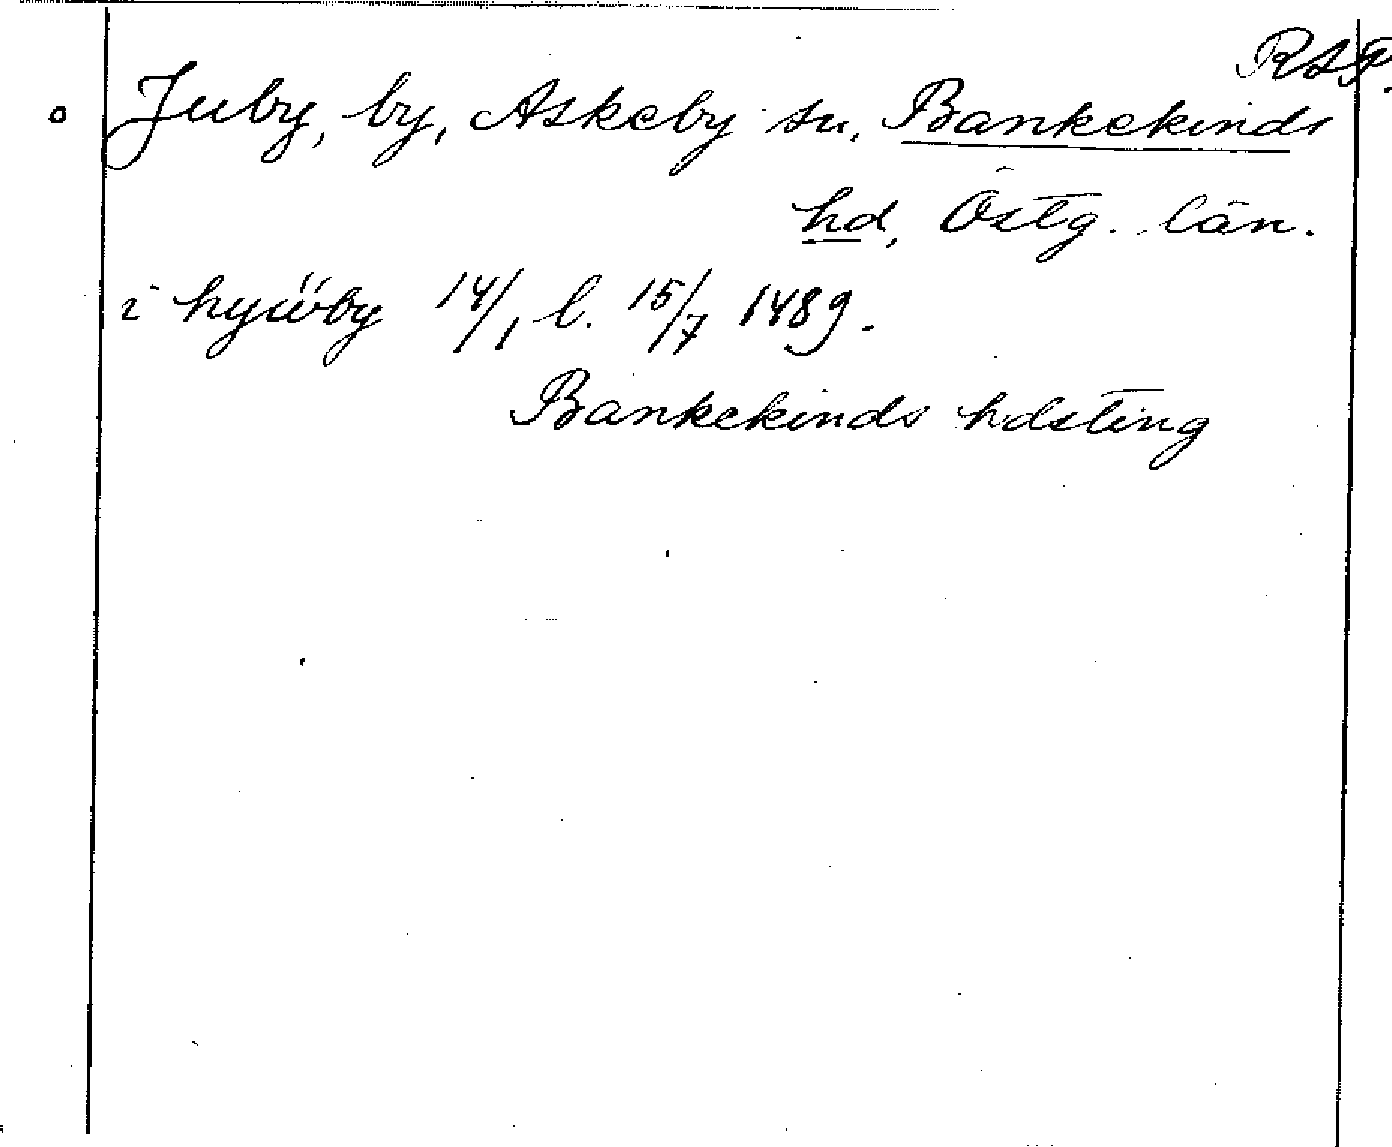 RAp.
Juby, by, Askeby sn, Bankekinds
hd, Östg. län.
i hywby 14/1 l. 15/7 1489.
Bankekinds hdsting